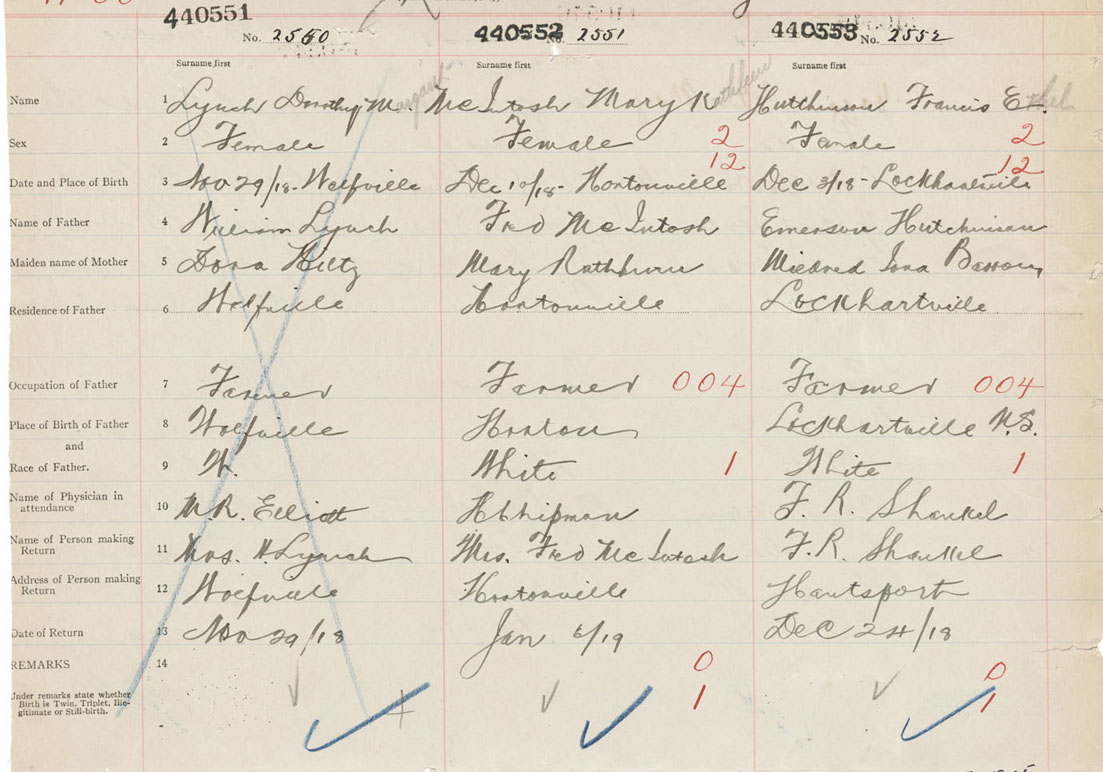 440551 440552 440553
No. 2550 No. 2551 No. 2552
Surname first Surname first Surname first
Name 1 Lynch Dorothy M. Margaret McIntosh Mary Kathleen Hutchinson Francis Ethel
Sex 2 Female Female 2 Female 2
12 12
Date and Place of Birth 3 Nov 29/18 - Wolfville Dec 10/18 - Hortonville Dec 3/18 - Lockhartville
Name of Father 4 William Lynch Fred McIntosh Emerson Hutchinson
Maiden name of Mother 5 Dora Hiltz Mary Rathburn Mildred Iona
Residence of Father 6 Wolfville Hortonville Lockhartville
Occupation of Father 7 Farmer Farmer 004 Farmer 004
Place of Birth of Father 8 Wolfville Horton Lockhartville N.S.
and
Race of Father. 9 W. White 1 White 1
Name of Physician in
attendance 10 M.R. Elliott H Chipman F. R. Shankel
Name of Person making
Return 11 Mrs. Lynch Mrs. Fred McIntosh F.R. Shankel
Address of Person making
Return 12 Wolfville Hortonville Hantsport
Date of Return 13 Nov 29/18 Jan 6/19 Dec 24/18
REMARKS 14 0 0
Under remarks state whether
Birth is Twin, Triplet, Ille-
gitimate or Still-birth. 1 1